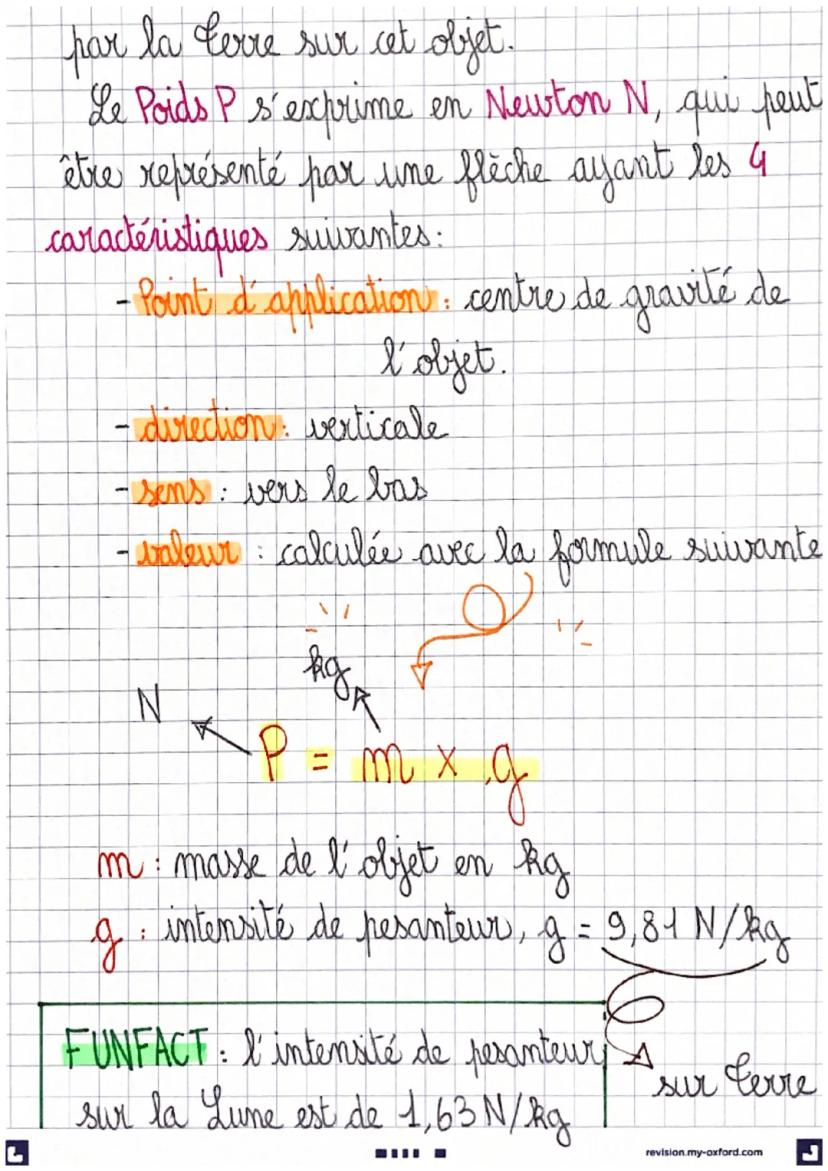 par la Terre sur cet objet.
Le Poids P s'exprime en Newton N, qui peut
être représenté par une flèche ayant les 4
caractéristiques suivantes:
- Point d'application: centre de gravité de
l'objet.
- direction: verticale
- sens: vers le bas
- valeur: calculée avec la formule suivante
kg
N
P = m x g
m: masse de l'objet en kg
g: intensité de pesanteur, g = 9,81 N/kg
sur Terre
FUNFACT: l'intensité de pesanteur
sur la Lune est de 1,63 N/kg
revision.my-oxford.com